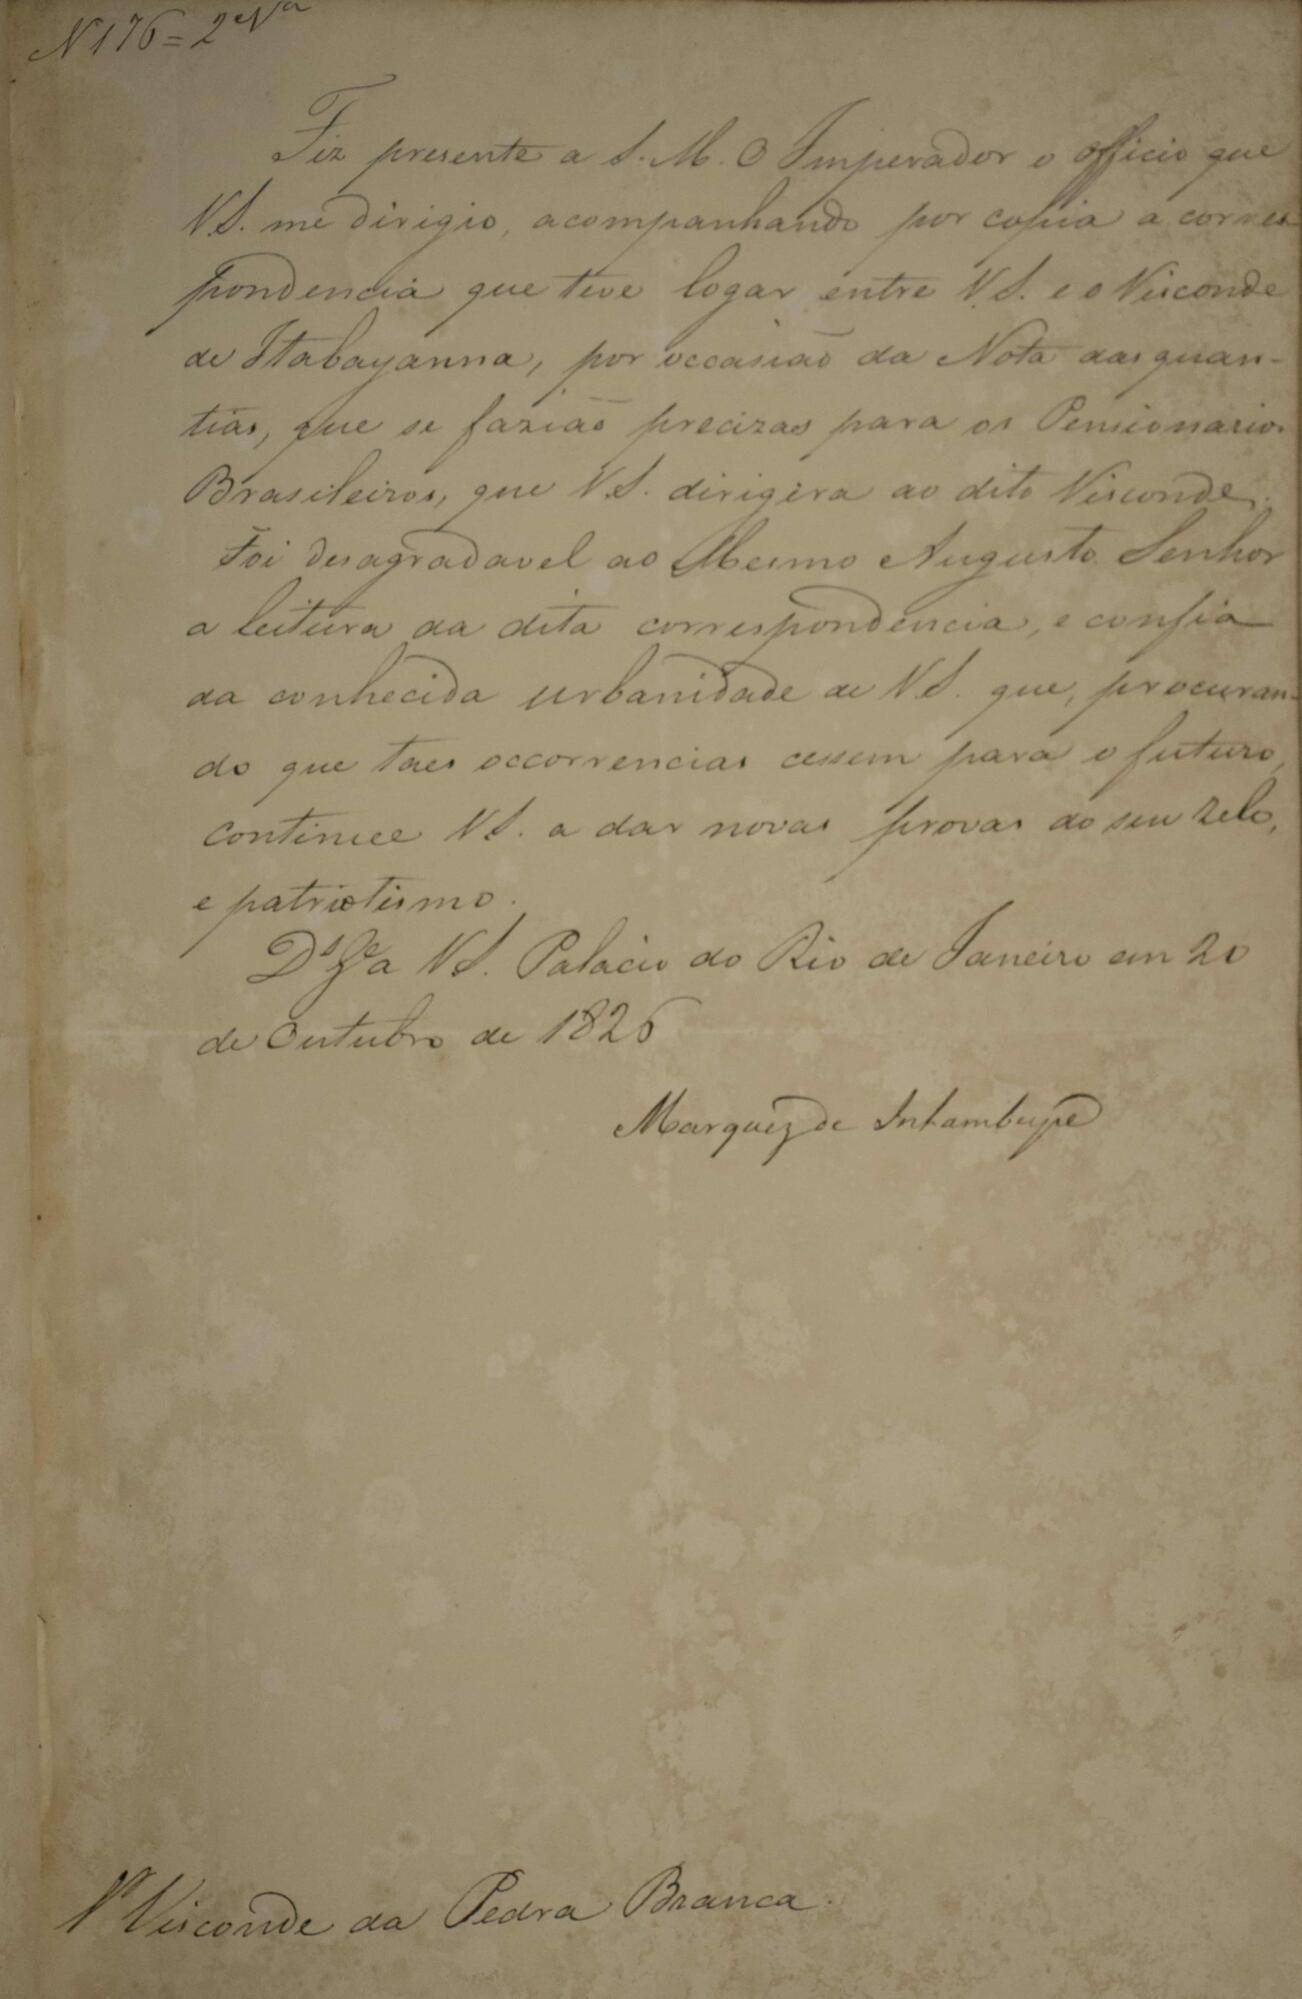 N 176 = 2ª Vª
Fiz presente a S. M. O Imperador o officio que
V S. me dirigio, acompanhando por copia a corres-
pondencia que teve logar entre V. S. e o Visconde
de Itabayanna, por occasião da Nota das quan-
tias, que se fazião precizas para os Pensionarios
Brasileiros, que V S. dirigira ao dito Visconde.
Foi desagradavel ao Mesmo Augusto Senhor
a leitura da dita correspondencia, e confia
da conhecida urbanidade de V S. que, procuran-
do que taes occorrencias cessem para o futuro,
continue V S. a dar novas provas do seu zelo,
e patriotismo.
Ds Ge a V S. Palacio do Rio de Janeiro em 20
de Outubro de 1826
Marquez de Inhambupe
Visconde da Pedra Branca.